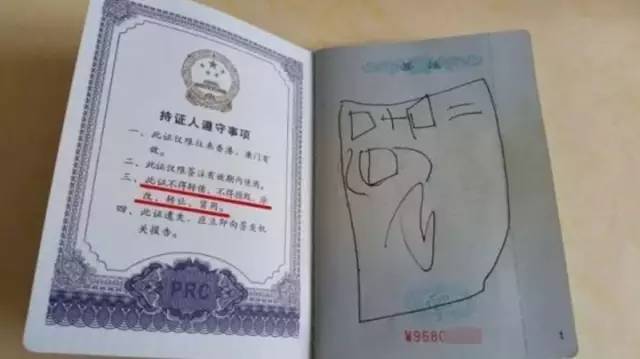 持证人遵守事项
一、此证仅限往来香港、澳门有
效。
二、此证仅限签注有效期内使用。
三、此证不得转借、不得损毁、涂
改、转让、冒用。
四、此证遗失，应立即向签发机
关报告。
PRC
签注
D+D=
W9680
1